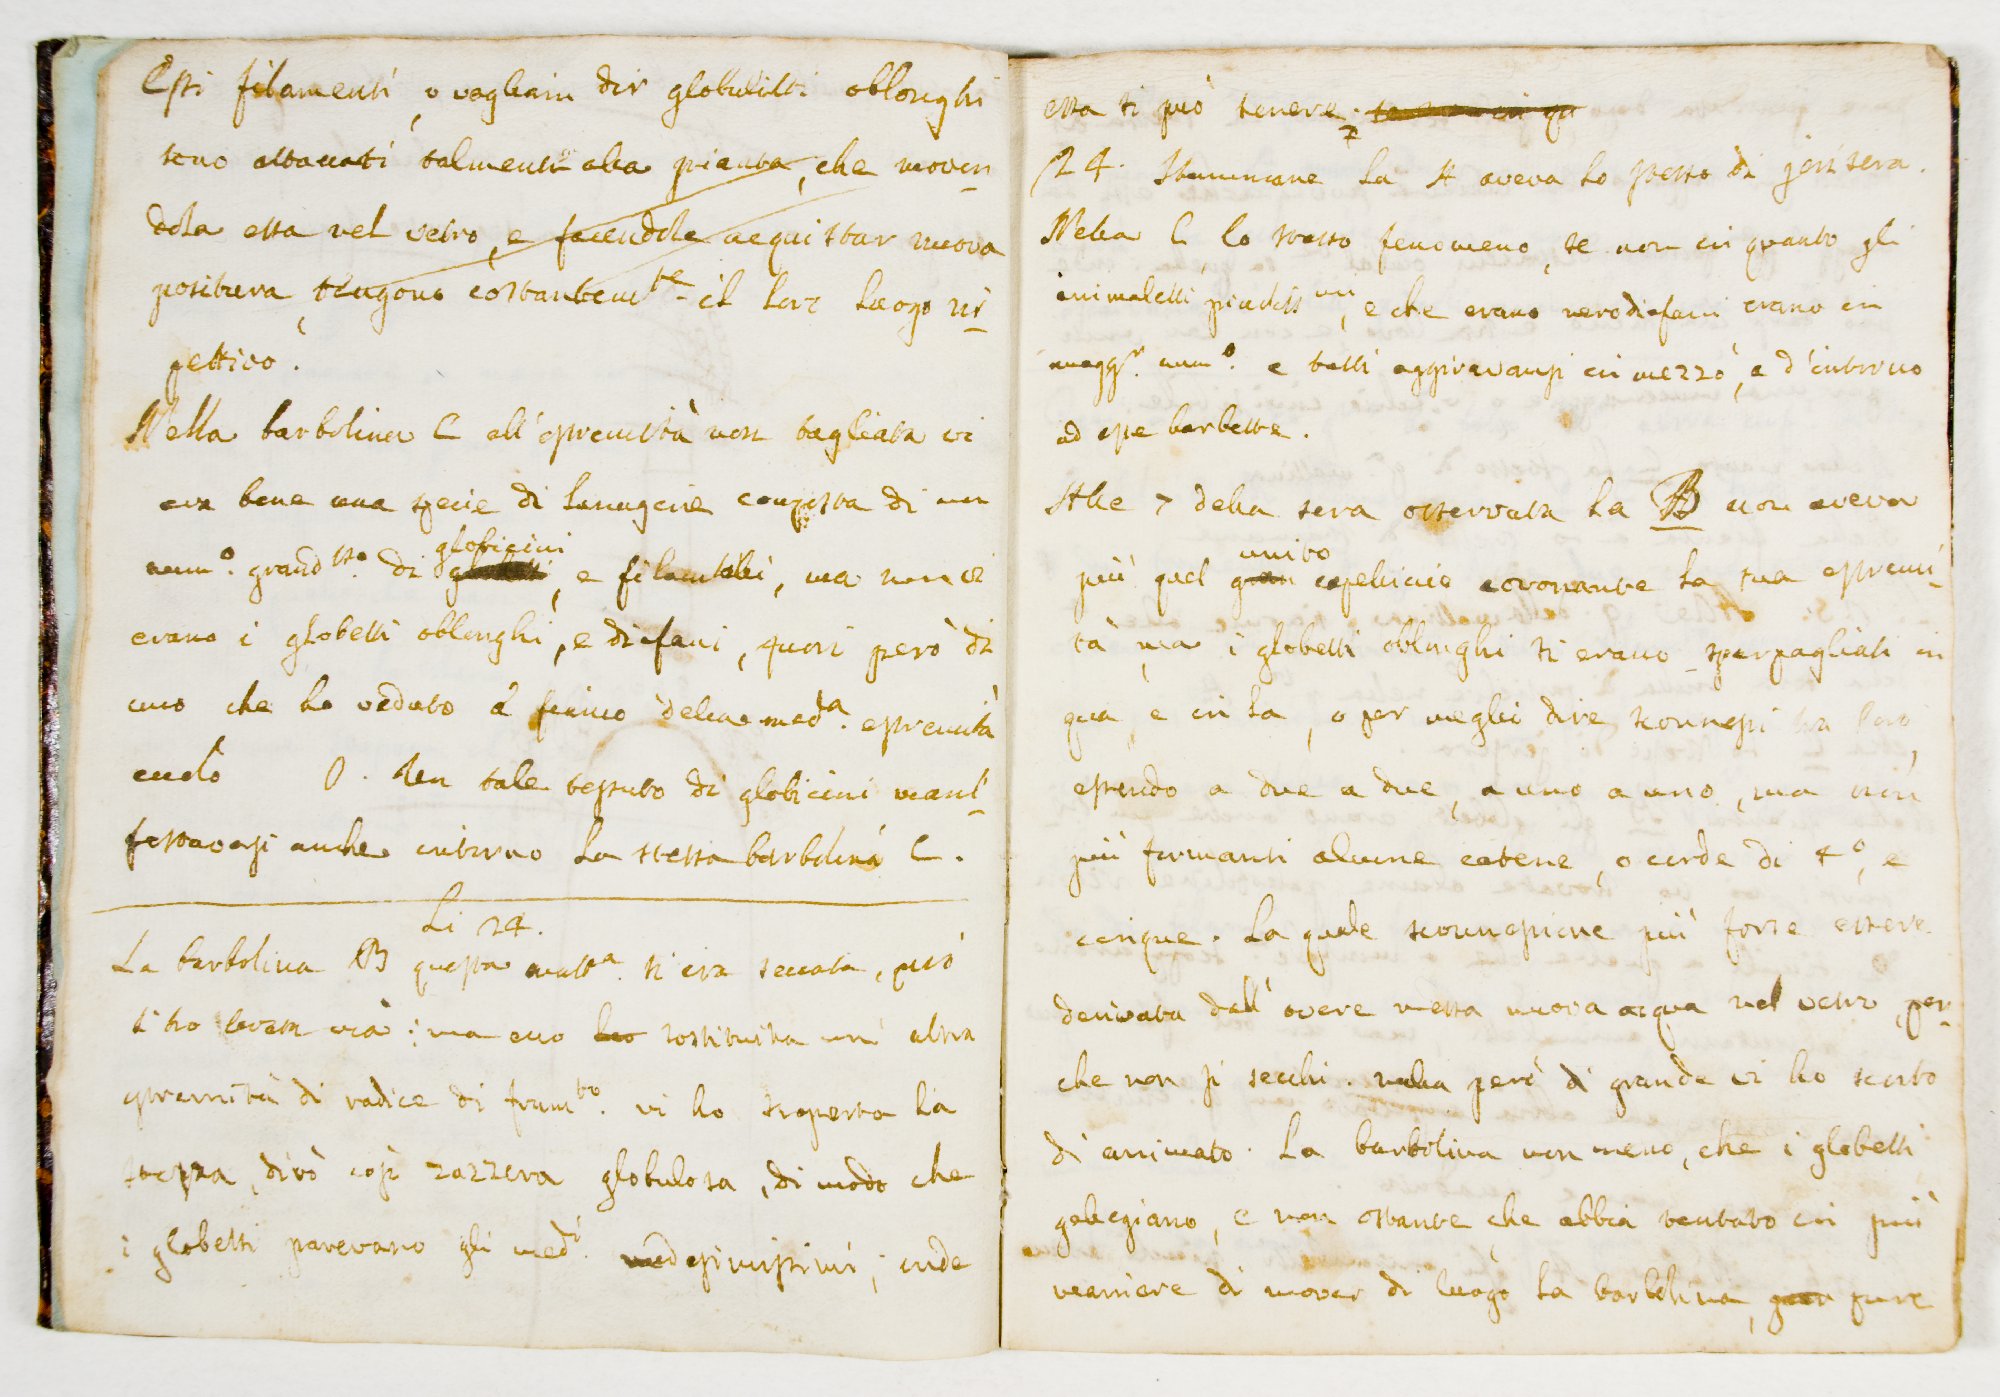 Essi filamenti, o vogliam dir globuletti oblonghi
sono attaccati talmente alla pianta, che moven
dola essa nel vetro, e facendole acquistar nuova
positura, tengono costantemte il loro luogo ris
pettivo.
Nella barbolina C all'estremità non tagliata vi
era bene una specie di lanugine composta di un
num.o grandsso. di
globicini
, e filamenti, ma non vi
erano i globetti oblonghi, e diafani, fuori però di
uno che ho veduto a fianco della meda. estremità
0. Un tale tessuto di globicini mani
festavasi anche intorno la stessa barbolina C.
Li 24.
La barbolina B questa matta. si era seccata, però
l'ho levata via: ma ecco ho sostituita un'altra
estremità di radice di frumto. vi ho scoperta la
stessa, dirò così zazzera globulosa, di modo che
i globetti parevano gli medi. medesimissimi; onde
essa si può tenere.
24. Stammane la A aveva lo stesso di jeri sera.
Nella C lo stesso fenomeno, se non in quanto gli
animaletti, e che erano diafani erano in
maggr. numo. e tutti aggiravansi in mezzo, e d'intorno
ad esse barbette.
Alle 7 della sera osservata la B non aveva
unito
più quel gran capellicio coronante la sua estremi
tà, ma i globetti oblonghi si erano sparpagliati in
qua, e in la, o per meglio dire sconnessi tra loro,
essendo a due a due, a uno a uno, ma non
più formanti alcune catene, o corde di 4o, e
cinque. La quale sconnessione può forse essere
derivata dall'avere messa nuova acqua nel vetro, per
che non si secchi. nulla però di grande vi ho scorto
di animato. La barbolina non meno, che i globetti
galegiano, e non ostante che abbia tentato in più
maniere di mover di luogo la barbolina, pure